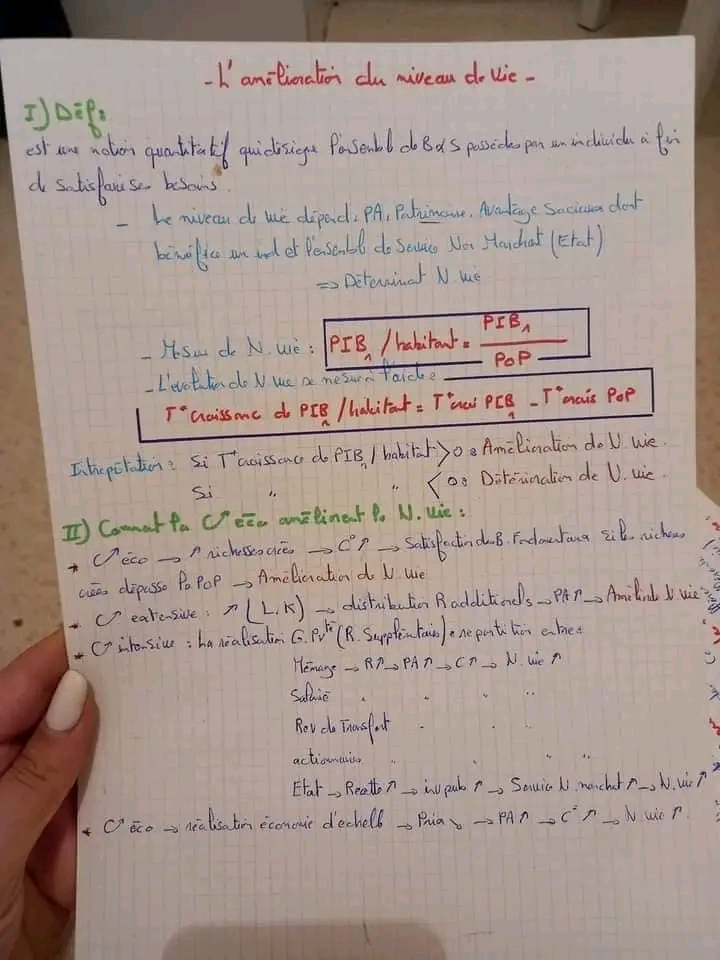 - L'amélioration du niveau de vie -
I) Déf:
est une notion quantitatif qui désigne l'ensembl de B & S possédes par un individu à fin
de satisfaire ses besoins.
- Le niveau de vie dépend: PA, Patrimoine, Avantage Sociaux dont
bénéfice un ind et l'ensembl de Service Non Marchat (Etat)
=> Déterminat N. vie
- Mesur de N. vie : PIBₙ / habitant = PIBₙ / PoP
- L'évolution de N. vie se mesure à l'aide:
T* croissanc de PIBₙ / habitant = T* croi PIBₙ - T* crois PoP
Intreprétation: Si T* croissance de PIBₙ / habitat > 0: Amélioration de N. vie.
Si " " < 0: Détérioration de N. vie.
II) Commat la C↗ éco améliorent le N. vie:
* C↗ éco → ↗ richesses crées → C° ↑ → Satisfaction du B. Fondamentaux si les richesses
crées dépasse la PoP → Amélioration de N. vie
* C↗ extensive: ↗ (L, K) → distribution R additionels → PA↑ → N. vie
* C↗ intensive: la réalisation G. Pvté (R. Supplémentaire): repartition entre:
Ménage → R↗ → PA↗ → C↗ → N. vie ↗
Salarié " " " "
Rev de Transfert " " "
actionnaires " " "
Etat → Recette ↗ → inv pub ↗ → Service N. marchat ↗ → N. vie ↗
* C↗ éco → réalisation économie d'échell → Prix ↘ → PA↗ → C° ↗ → N. vie ↗.